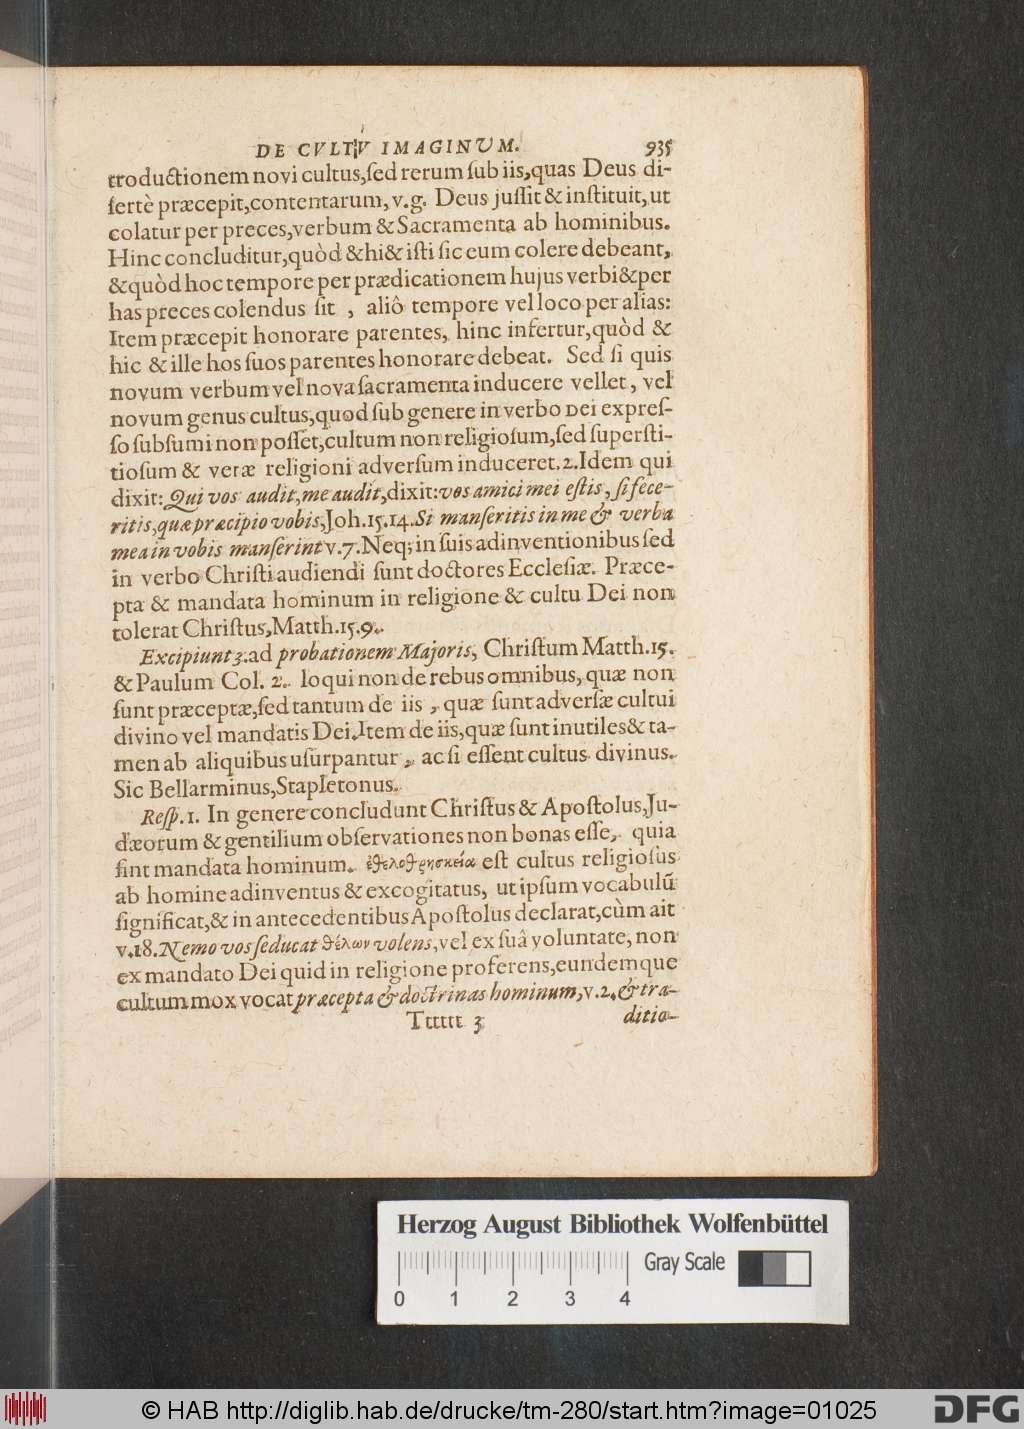 DE CVLTV IMAGINUM. 935
troductionem novi cultus,ſed rerum ſub iis,quas Deus di-
ſertè præcepit,contentarum, v.g. Deus juſſit & inſtituit,ut
colatur per preces,verbum & Sacramenta ab hominibus.
Hinc concluditur,quòd & hi & iſti ſic eum colere debeant,
& quòd hoc tempore per prædicationem hujus verbi & per
has preces colendus ſit , aliô tempore vel loco per alias:
Item præcepit honorare parentes, hinc infertur,quòd &
hic & ille hos ſuos parentes honorare debeat. Sed ſi quis
novum verbum vel nova ſacramenta inducere vellet, vel
novum genus cultus,quod ſub genere in verbo Dei expreſ-
ſo ſubſumi non poſſet,cultum non religioſum,ſed ſuperſti-
tioſum & veræ religioni adverſum induceret.2.Idem qui
dixit: Qui vos audit, me audit,dixit:vos amici mei eſtis, ſi fece-
ritis,quæ præcipio vobis,Joh.15.14.Si manſeritis in me & verba
mea in vobis manſerint v.7.Neq; in ſuis adinventionibus ſed
in verbo Chriſti audiendi ſunt doctores Eccleſiæ. Præce-
pta & mandata hominum in religione & cultu Dei non
tolerat Chriſtus,Matth.15.9.
Excipiunt 3.ad probationem Majoris, Chriſtum Matth.15.
& Paulum Col. 2. loqui non de rebus omnibus, quæ non
ſunt præceptæ,ſed tantum de iis , quæ ſunt adverſæ cultui
divino vel mandatis Dei.Item de iis,quæ ſunt inutiles & ta-
men ab aliquibus uſurpantur , ac ſi eſſent cultus divinus.
Sic Bellarminus,Stapletonus.
Reſp.1. In genere concludunt Chriſtus & Apoſtolus,Ju-
dæorum & gentilium obſervationes non bonas eſſe, quia
ſint mandata hominum. ἐθελοθρησκεία eſt cultus religioſus
ab homine adinventus & excogitatus, ut ipſum vocabulũ
ſignificat,& in antecedentibus Apoſtolus declarat,cùm ait
v.18.Nemo vos ſeducat θέλων volens,vel ex ſuâ voluntate, non
ex mandato Dei quid in religione proferens,eundemque
cultum mox vocat præcepta & doctrinas hominum,v.2.& tra-
Ttttt 3 ditio-
Herzog August Bibliothek Wolfenbüttel
Gray Scale
0 1 2 3 4
© HAB http://diglib.hab.de/drucke/tm-280/start.htm?image=01025
DFG